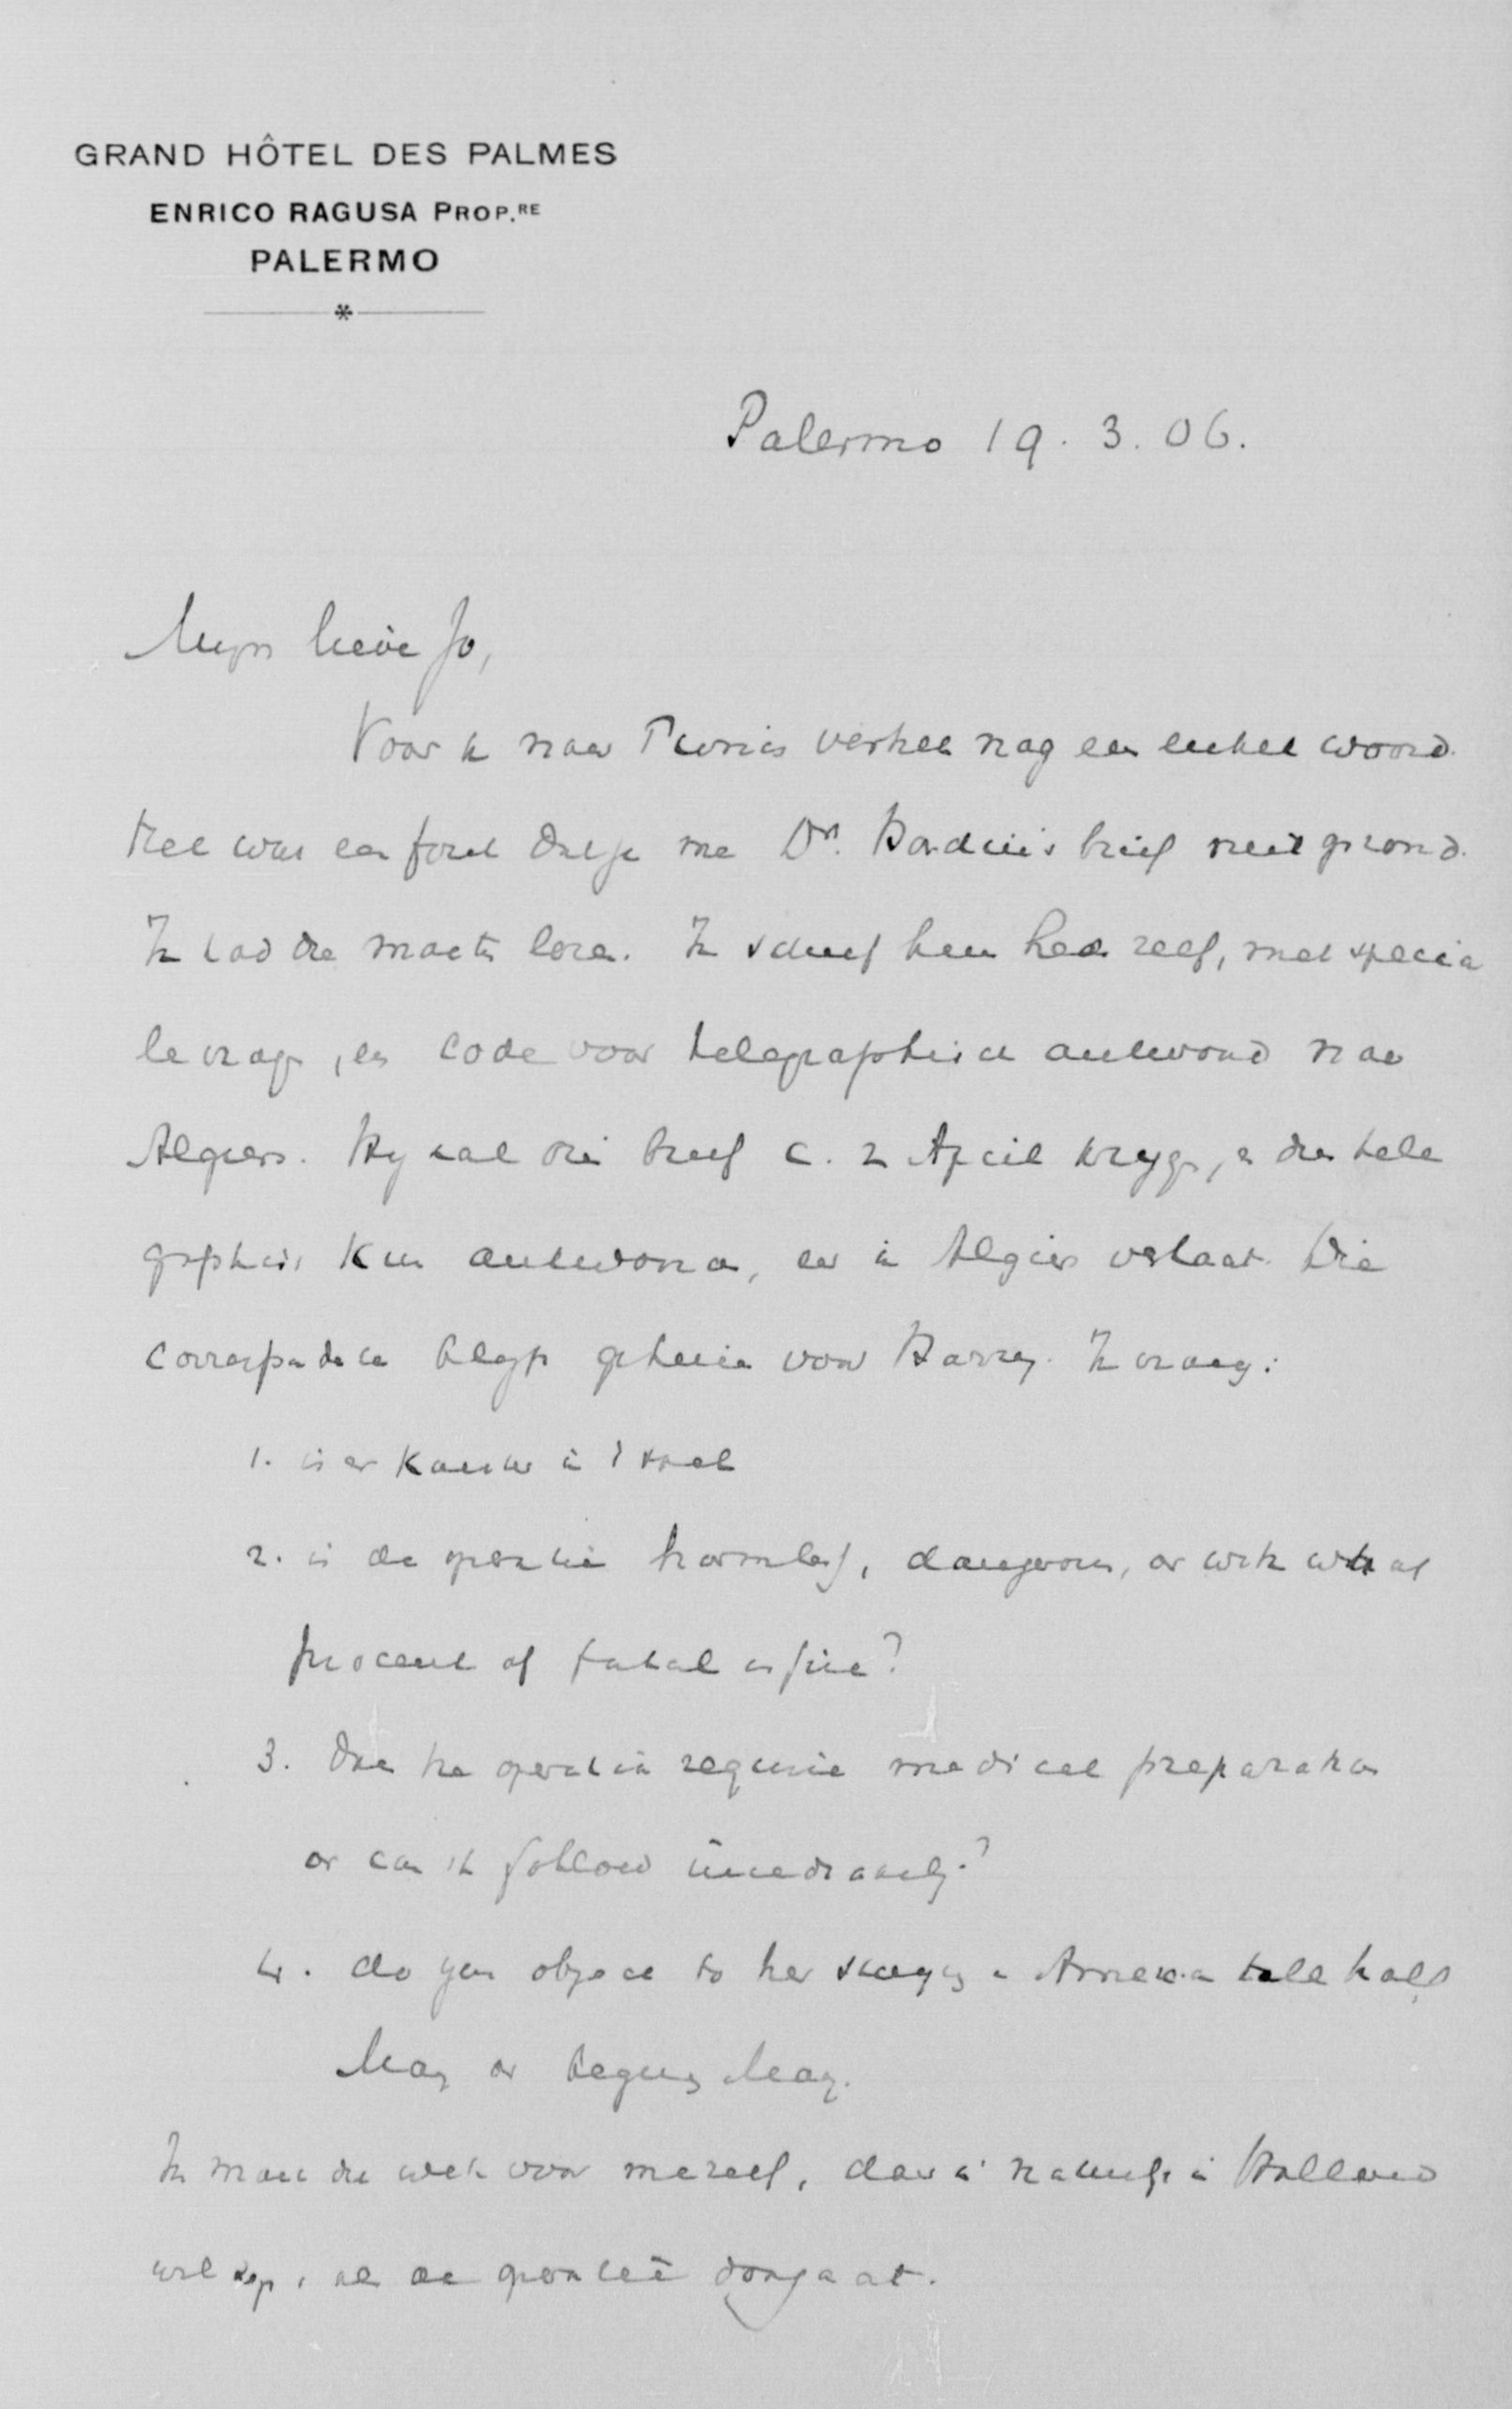 GRAND HÔTEL DES PALMES
ENRICO RAGUSA PROP.RE
PALERMO
Palermo 19. 3. 06.
Mijn lieve Jo,
Voor ik naar Tunis vertrek nog een enkel woord.
Het was een fout dat je me Dr. brief niet zond.
Ik had die moeten lezen. Ik schreef hem heden zelf, met specia
le vragen, en code voor telegraphisch antwoord naar
Algiers. Hij zal die brief c. 2 April krijgen, en dan tele
graphisch kan antwoorden, eer ik Algiers verlaat. Die
correspondentie blijft geheim voor Harry. Ik vraag:
1. is er kanker in 't spel
2. is de operatie harmless, dangerous, or with what
procent of fatal
3. Does the operation require medical preparation
or can it follow immediately?
4. do you object to her staying in America till half
May or begin May.
Ik moet dit weten voor mezelf, daar ik natuurlijk in Holland
wil zijn, als de operatie doorgaat.